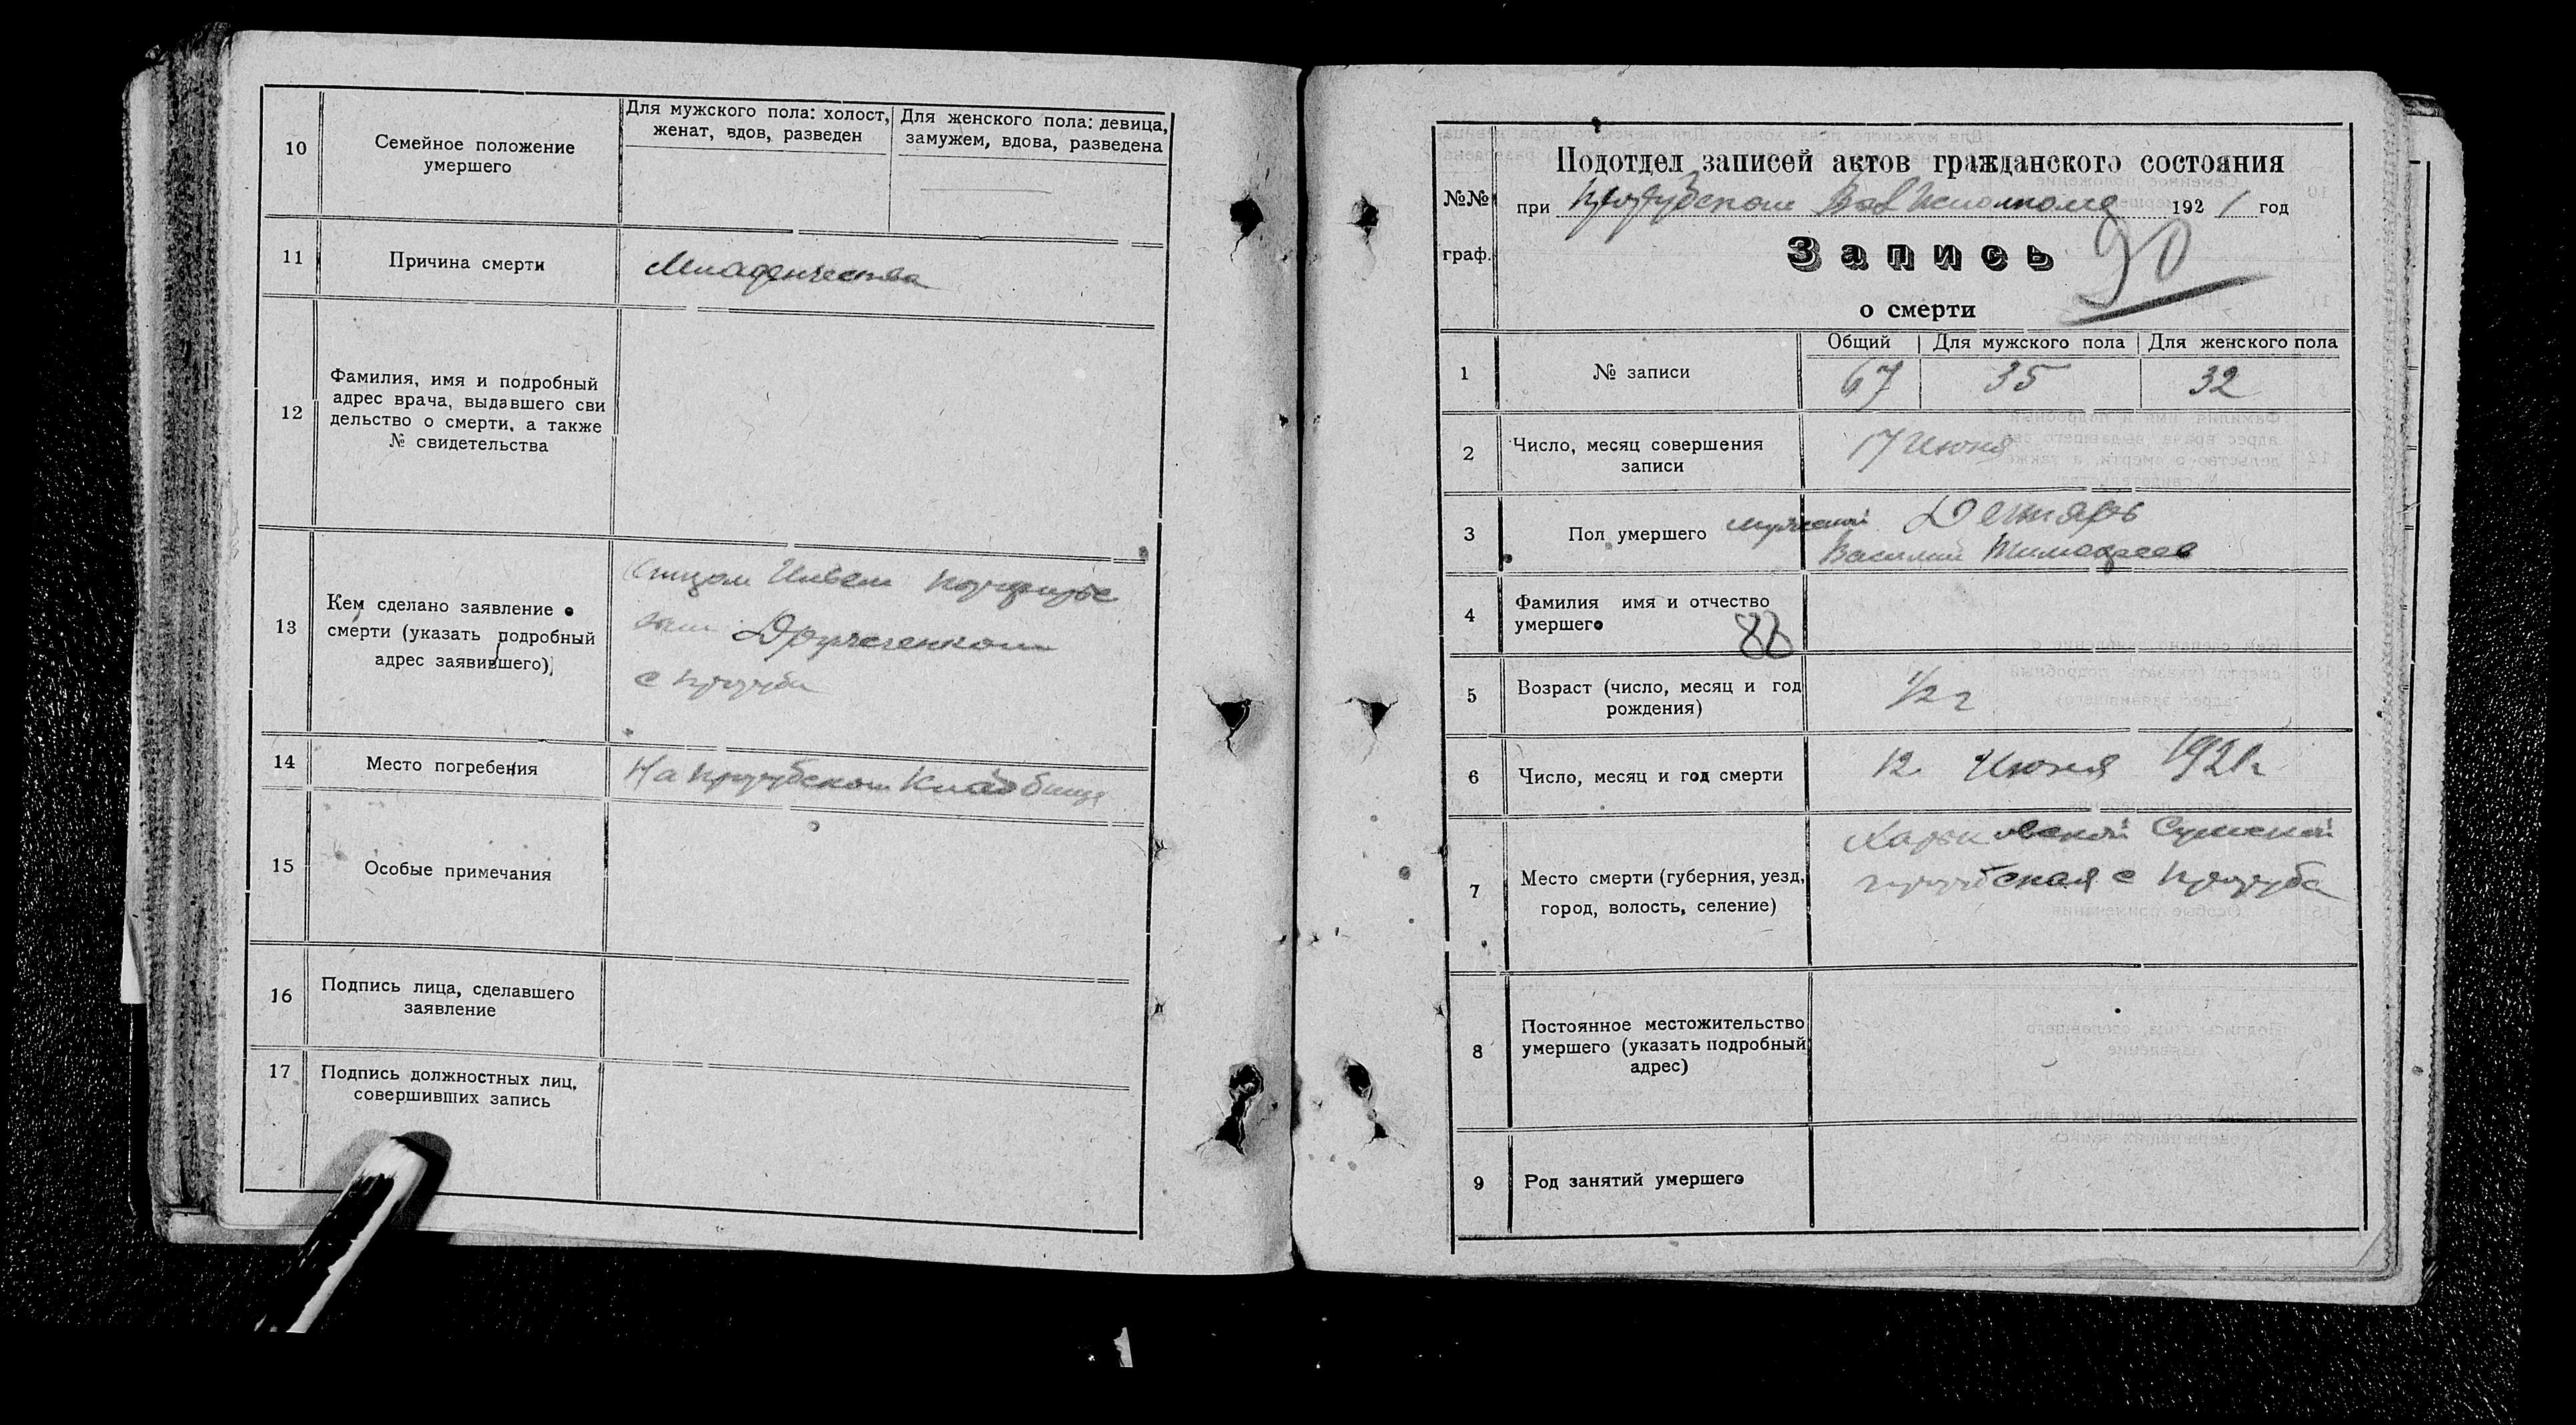 10
Семейное положение
умершего
Для мужского пола: холост,
женат, вдов, разведен
Для женского пола: девица,
замужем, вдова, разведена
11
Причина смерти
Младенчества
12
Фамилия, имя и подробный
адрес врача, выдавшего сви
дельство о смерти, а также
№ свидетельства
13
Кем сделано заявление о
смерти (указать подробный
адрес заявившего)
14
Место погребения
На
15
Особые примечания
16
Подпись лица, сделавшего
заявление
17
Подпись должностных лиц,
совершивших запись
Подотдел записей актов гражданского состояния
№№
граф.
при 1921 год
Запись 90
о смерти
1
№ записи
Общий
Для мужского пола
Для женского пола
67
35
32
2
Число, месяц совершения
записи
17 Июня
3
Пол умершего мужеской
Дегтярь
Василий
4
Фамилия имя и отчество
умершего
88
5
Возраст (число, месяц и год
рождения)
1/2 г
6
Число, месяц и год смерти
12 Июня 1921г
7
Место смерти (губерния, уезд,
город, волость, селение)
Харьковской Сумской
8
Постоянное местожительство
умершего (указать подробный
адрес)
9
Род занятий умершего